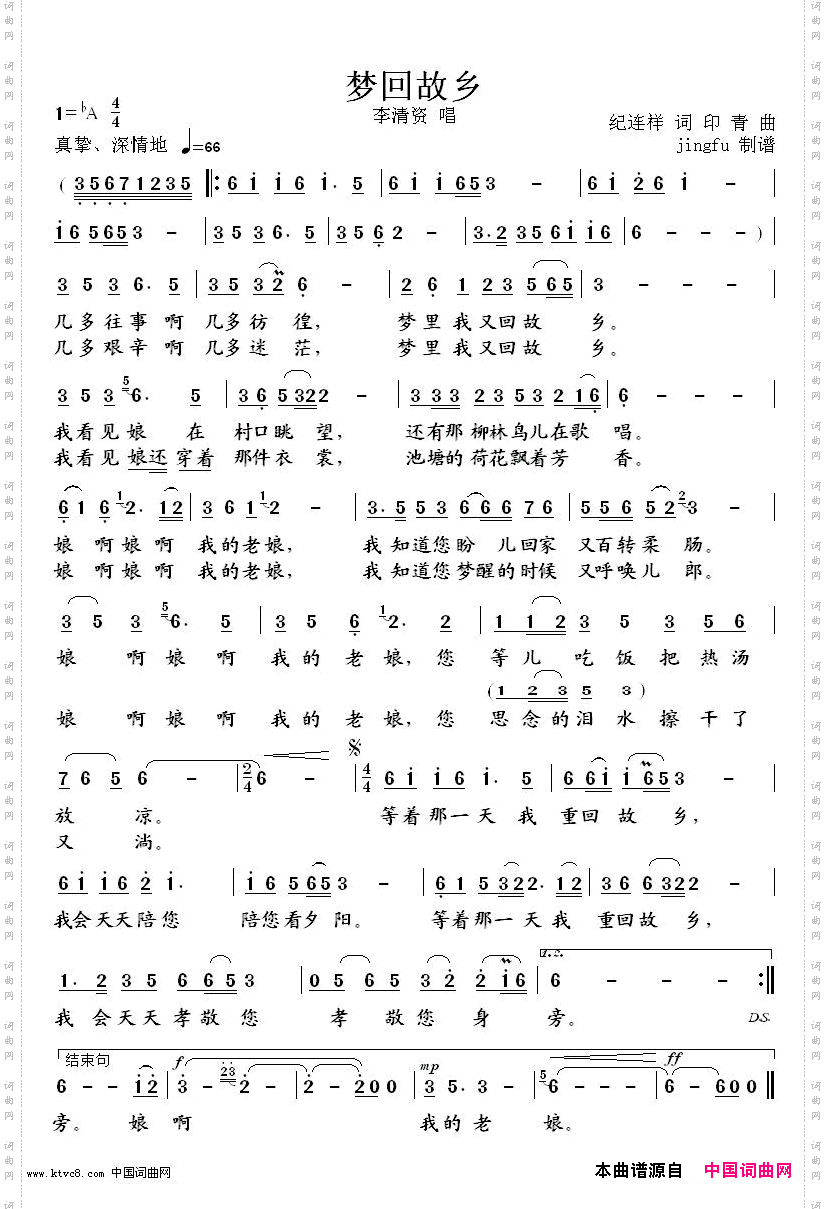 梦回故乡
1=♭A 4/4
李清资 唱
纪连样 词 印 青 曲
真挚、深情地 ♩=66
jingfu 制谱
( 3 5 6 7 1 2 3 5 ‖: 6 i i 6 i· 5 | 6 i i 6 5 3 - | 6 i 2 6 i - |
i 6 5 6 5 3 - | 3 5 3 6· 5 | 3 5 6 2 - | 3·2 3 5 6 i i 6 | 6 - - - )
3 5 3 6· 5 | 3 5 3 2 6 - | 2 6 1 2 3 5 6 5 | 3 - - - |
几多往事 啊 几多彷 徨, 梦里 我又回故 乡。
几多艰辛 啊 几多迷 茫, 梦里 我又回故 乡。
3 5 3 5 6· 5 | 3 6 5 3 2 2 - | 3 3 3 2 3 5 3 2 1 6 | 6 - - - |
我看见娘 在 村口眺 望, 还有那 柳林鸟儿在歌 唱。
我看见娘还 穿着 那件衣 裳, 池塘的 荷花飘着芳 香。
6 1 6 1 2· 1 2 | 3 6 1 1 2 - | 3· 5 5 3 6 6 6 7 6 | 5 5 6 5 2 2 3 - |
娘 啊娘 啊 我的老娘, 我 知道您盼 儿回家 又百转柔 肠。
娘 啊娘 啊 我的老娘, 我 知道您梦醒的时候 又呼唤儿 郎。
3 5 3 5 6· 5 | 3 5 6 1 2· 2 | 1 1 2 3 5 3 5 6 |
娘 啊娘 啊 我 的 老 娘, 您 等 儿 吃 饭 把 热 汤
( 1 2 3 5 3 )
娘 啊娘 啊 我 的 老 娘, 您 思 念 的 泪 水 擦 干 了
7 6 5 6 - | 2/4 6 - | 4/4 6 i i 6 i· 5 | 6 6 i i 6 5 3 - |
放 凉。 等着那一天 我 重回 故 乡,
又 淌。
6 i i 6 2 i· | i 6 5 6 5 3 - | 6 1 5 3 2 2· 1 2 | 3 6 6 3 2 2 - |
我会天天陪您 陪您看夕 阳。 等着那一天我 重回故 乡,
1· 2 3 5 6 6 5 3 | 0 5 6 5 3 2 2 i 6 | 1.2. 6 - - - :‖
我 会天天孝敬 您 孝 敬您 身 旁。 D.S.
结束句 f mp ff
6 - - i 2 | 3 - 2 3 2 - | 2 - 2 0 0 | 3 5· 3 - | 5 6 - - - | 6 - 6 0 0 ‖
旁。 娘 啊 我的 老 娘。
www.ktvc8.com 中国词曲网
本曲谱源自 中国词曲网